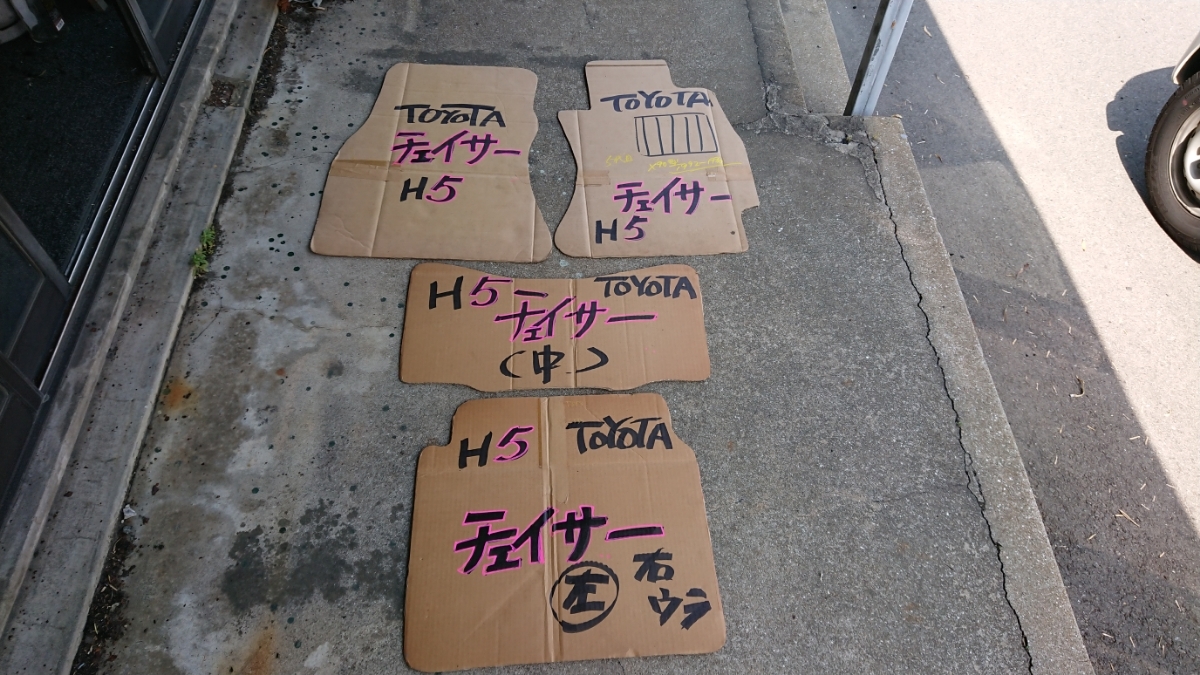 TOYOTA
チェイサー
H5
TOYOTA
チェイサー
H5
H5 TOYOTA
チェイサー
(中)
H5 TOYOTA
チェイサー
左 右
ウラ